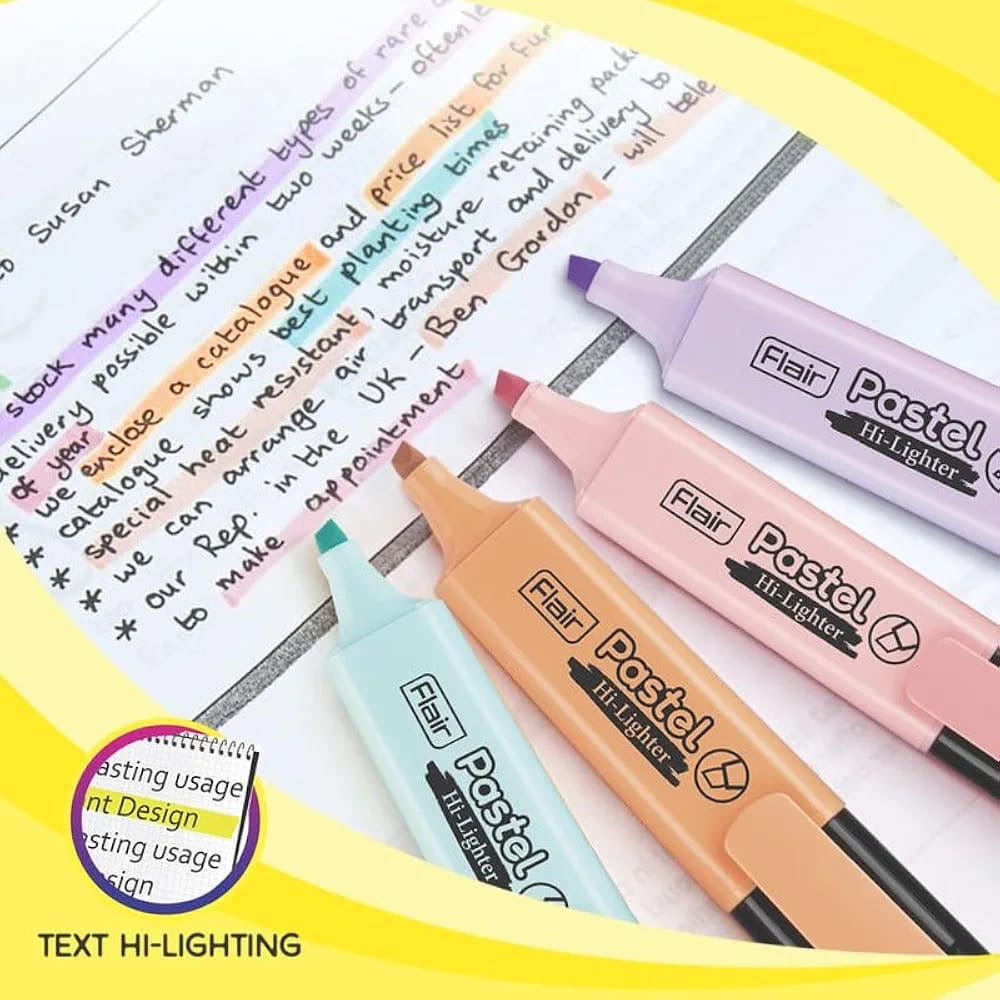 Susan Sherman
stock many different types of rare
delivery possible within two weeks - often le
of year
* we enclose a catalogue and price list for fur
* catalogue shows best planting times
special heat resistant, moisture retaining pack
* we can arrange air transport and delivery to
in the UK - Ben Gordon - will tele
* our Rep.
to make appointment
Flair
Pastel
Hi-Lighter
Flair
Pastel
Hi-Lighter
Flair
Pastel
Hi-Lighter
Flair
Pastel
Hi-Lighter
asting usage
nt Design
sting usage
sign
TEXT HI-LIGHTING